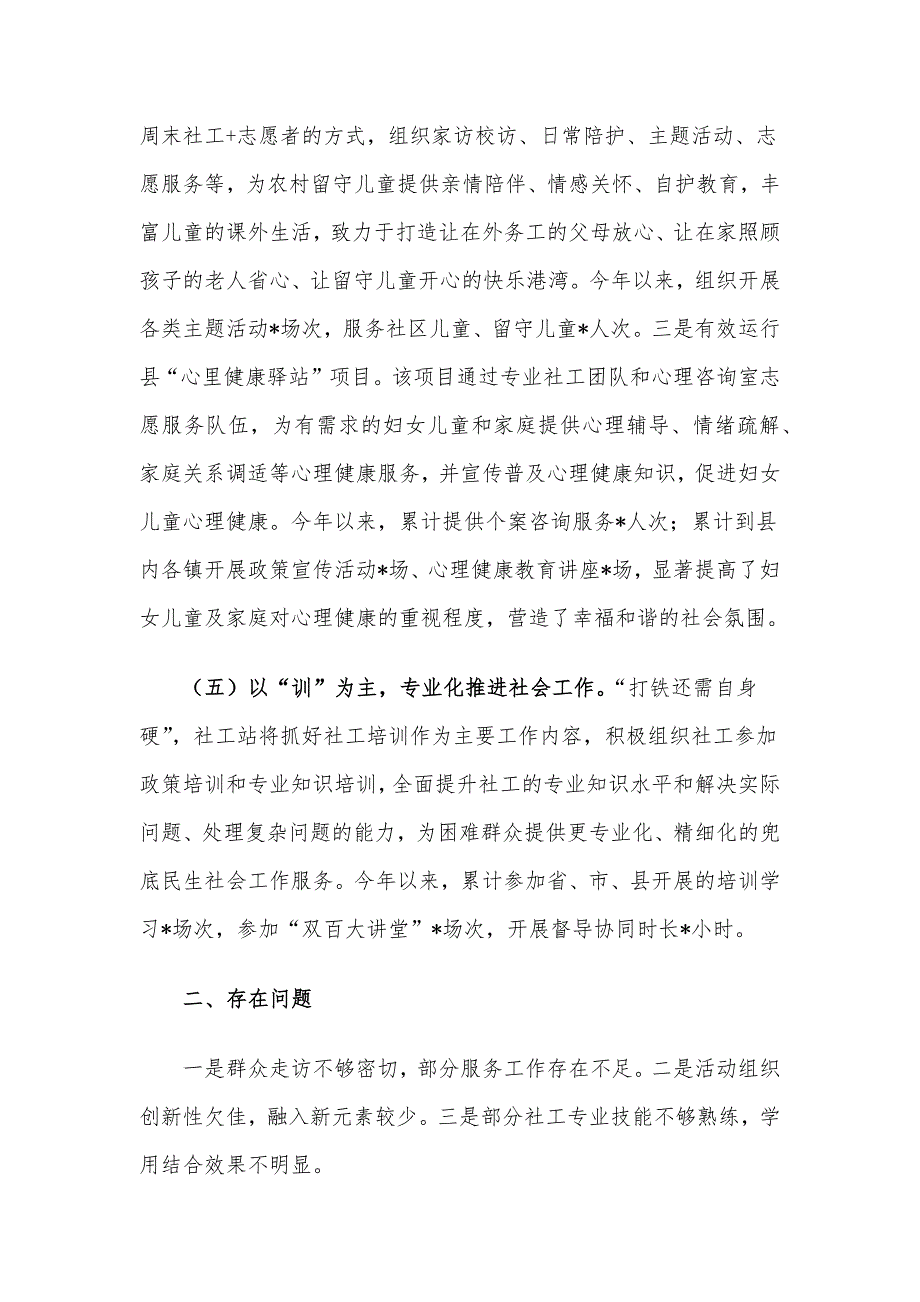 周末社工+志愿者的方式，组织家访校访、日常陪护、主题活动、志
愿服务等，为农村留守儿童提供亲情陪伴、情感关怀、自护教育，丰
富儿童的课外生活，致力于打造让在外务工的父母放心、让在家照顾
孩子的老人省心、让留守儿童开心的快乐港湾。今年以来，组织开展
各类主题活动*场次，服务社区儿童、留守儿童*人次。三是有效运行
县“心里健康驿站”项目。该项目通过专业社工团队和心理咨询室志
愿服务队伍，为有需求的妇女儿童和家庭提供心理辅导、情绪疏解、
家庭关系调适等心理健康服务，并宣传普及心理健康知识，促进妇女
儿童心理健康。今年以来，累计提供个案咨询服务*人次；累计到县
内各镇开展政策宣传活动*场、心理健康教育讲座*场，显著提高了妇
女儿童及家庭对心理健康的重视程度，营造了幸福和谐的社会氛围。
（五）以“训”为主，专业化推进社会工作。“打铁还需自身
硬”，社工站将抓好社工培训作为主要工作内容，积极组织社工参加
政策培训和专业知识培训，全面提升社工的专业知识水平和解决实际
问题、处理复杂问题的能力，为困难群众提供更专业化、精细化的兜
底民生社会工作服务。今年以来，累计参加省、市、县开展的培训学
习*场次，参加“双百大讲堂”*场次，开展督导协同时长*小时。
二、存在问题
一是群众走访不够密切，部分服务工作存在不足。二是活动组织
创新性欠佳，融入新元素较少。三是部分社工专业技能不够熟练，学
用结合效果不明显。